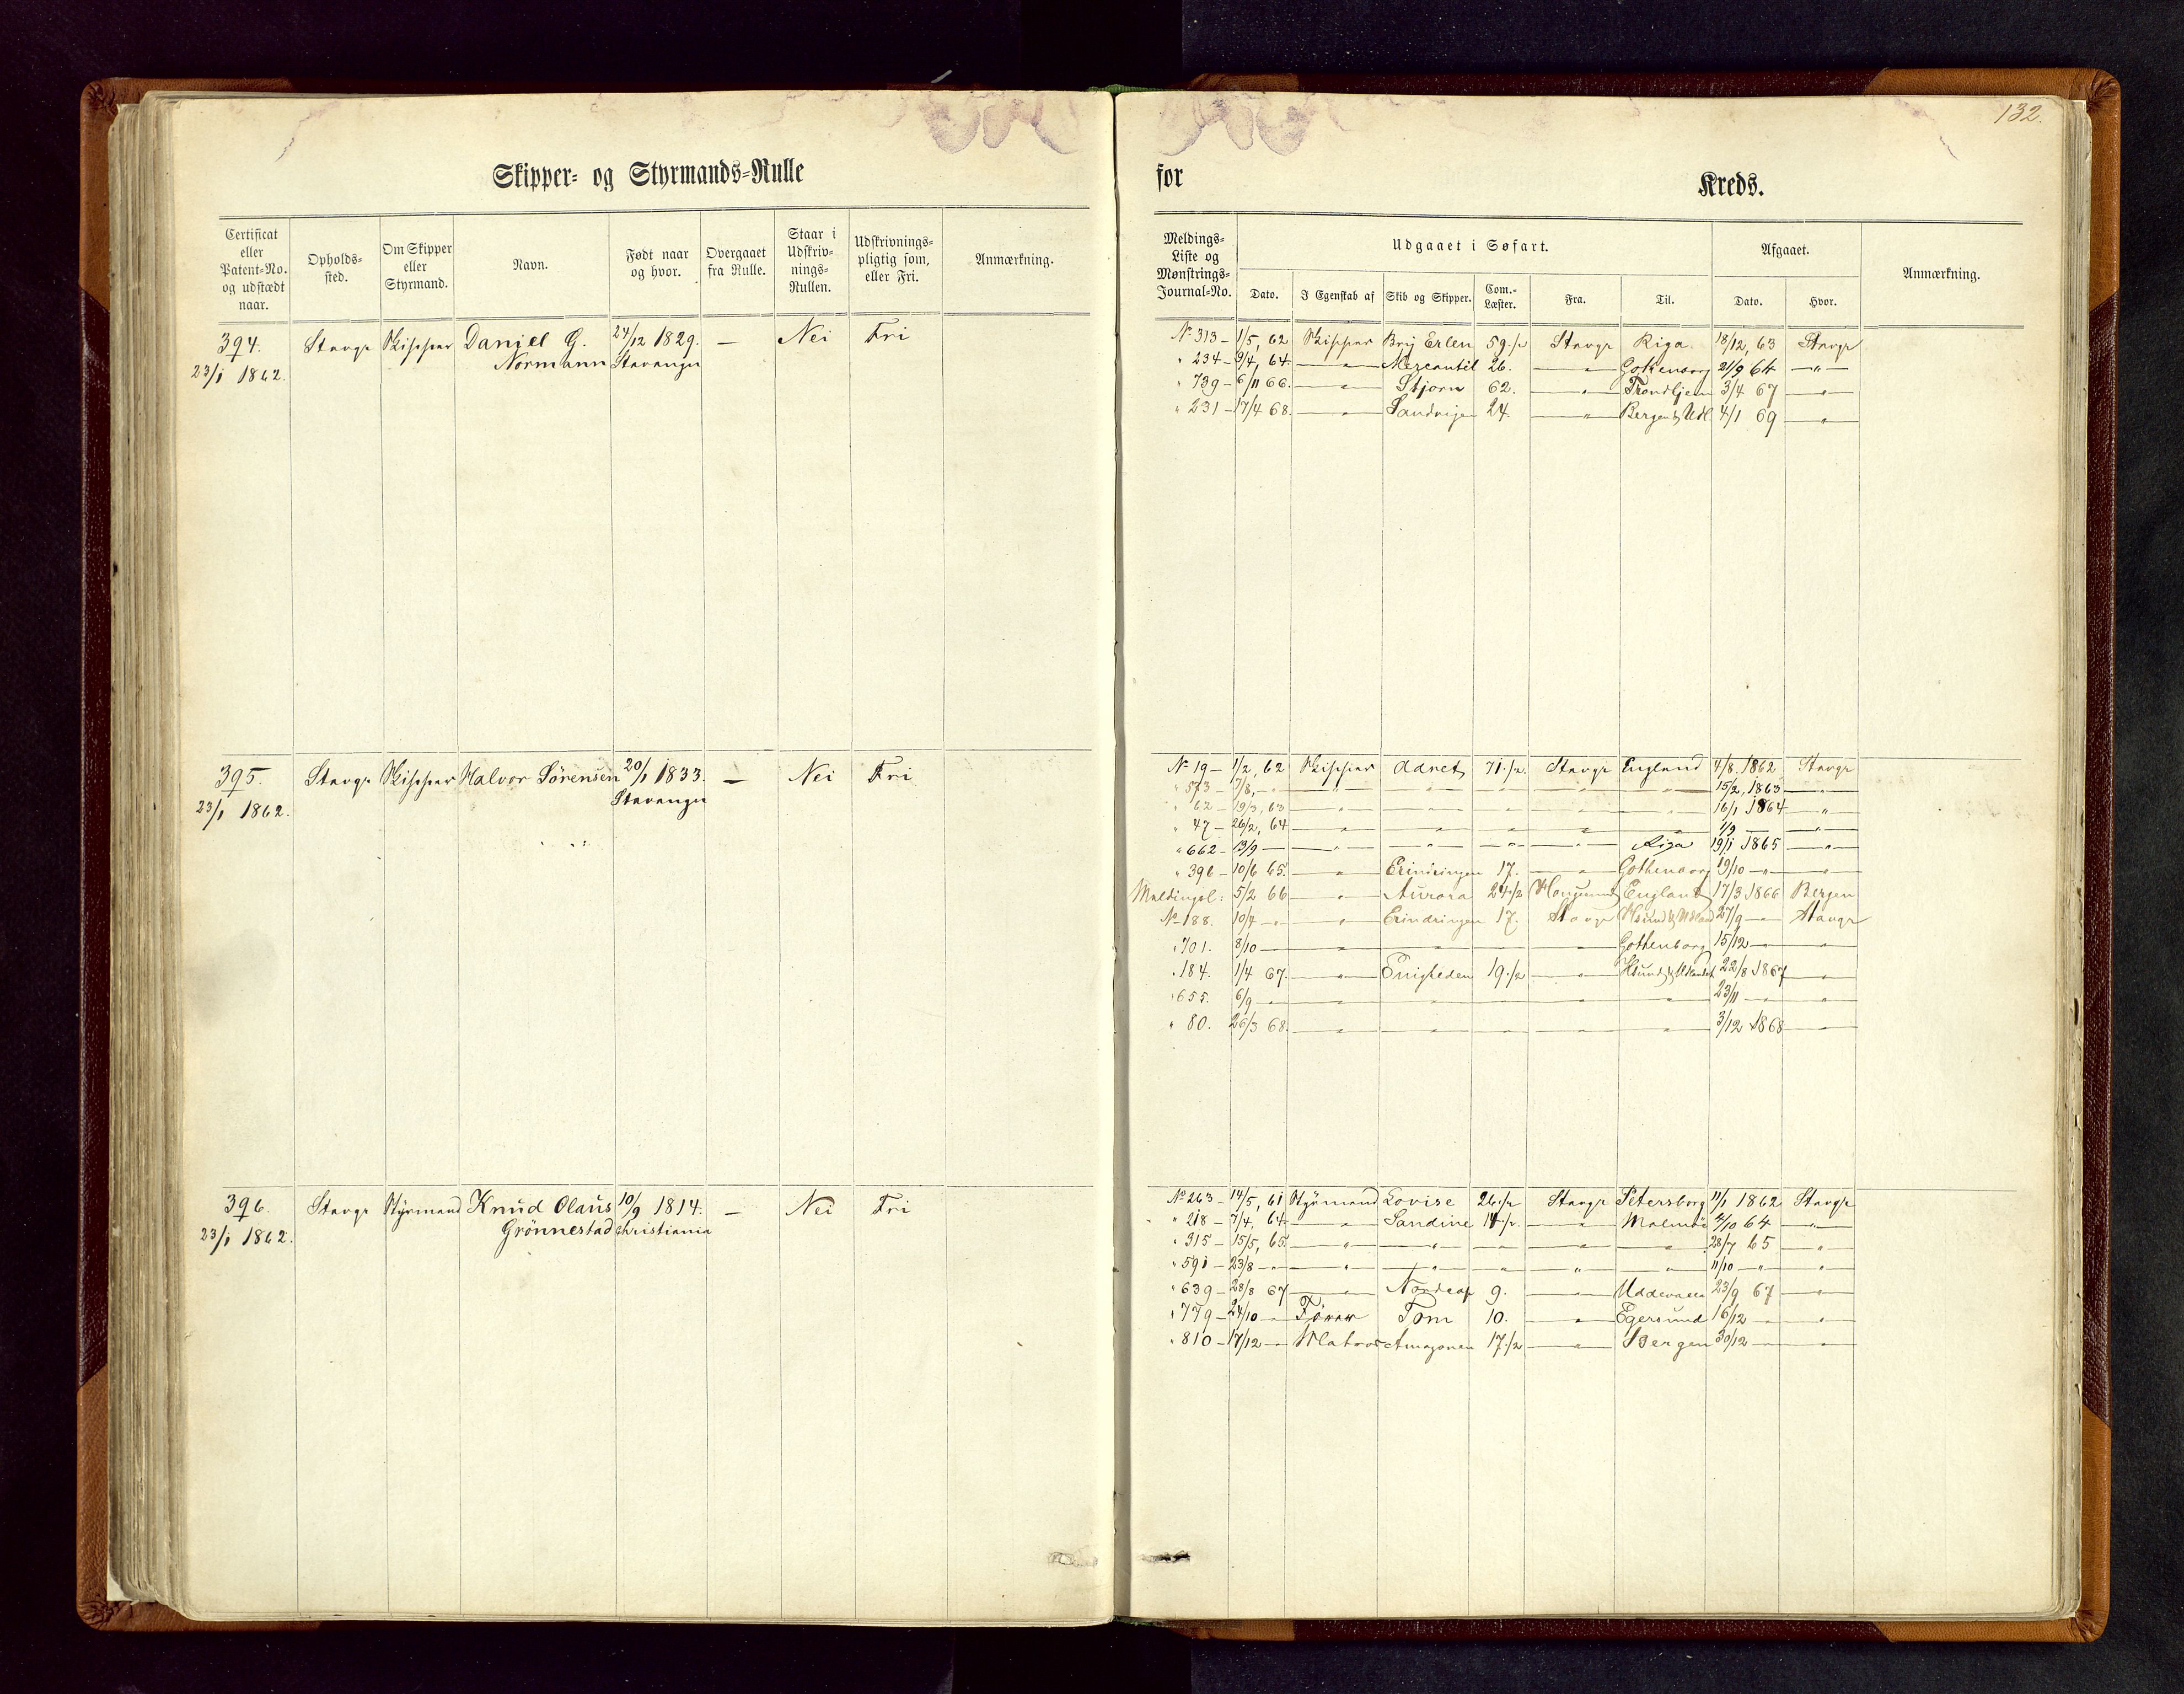 132.
Skipper- og Styrmands-Rulle for Kreds.
Certificat eller Patent-No. og udstædt naar. | Opholds-sted. | Om Skipper eller Styrmand. | Navn. | Født naar og hvor. | Overgaaet fra Rulle. | Staar i Udskriv-nings-Rullen. | Udskrivnings-pligtig som, eller Fri. | Anmærkning.
Meldings-Liste og Mønstrings-Journal-No. | Udgaaet i Søfart. | Afgaaet. | Anmærkning.
Dato. | I Egenskab af | Skib og Skipper. | Com.-Læster. | Fra. | Til. | Dato. | Hvor.
394. Stavgr Skipper Daniel G. 24/12 1829. — Nei Fri
23/1 1862. Normann Stavanger
No 313 – 1/5, 62 Skipper Brig Erlen 59 1/2 Stavgr Riga. 18/12, 63 Stavgr
" 234 – 9/4, 64 — " — Mercantil 26. — " — Gothenborg 21/9 64 — " —
" 739 – 6/11 66. — " — Stjorn 62. — " — Trondhjem 3/4 67 — " —
" 231 – 17/4 68. — " — Sandvigen 24. — " — Bergen & Udl 4/1 69 — " —
395. Stavgr Skipper Halvor Sörensen 20/1 1833. — Nei Fri
23/1 1862. Stavanger
No 19 – 1/2, 62 Skipper Adnet 71 1/2 Stavgr England 4/8. 1862 Stavgr
" 573 – 7/8, – " — " — — " — — " — — " — — " — 15/2, 1863 — " —
" 62 – 19/3, 63 — " — — " — — " — — " — — " — 16/1 1864 — " —
" 47 – 26/2, 64 — " — — " — — " — — " — — " — 1/9 — — " —
" 662 – 13/9 — — " — — " — — " — — " — Riga 19/1 1865 — " —
" 396 – 10/6 65. — " — Erindringen 17. — " — Gothenborg 19/10 – " – — " —
Meldingsl: 5/2 66 — " — Aurora 24 1/2 Haugesund England 17/3 1866 Bergen
No 188. 10/4 – " – — " — Erindringen 17. Stavgr Hsund & Udland 27/9 — Stavgr
" 701. 8/10 — — — — — Gothenborg 15/12 — — " —
" 184. 1/4 67. — " — Enigheden 19 1/2 — " — Hsund & Udlandet 22/8 1867 — " —
" 655. 6/9 – " – — " — — " — — " — — " — — " — 23/11 – " – — " —
" 80. 26/3 68. — " — — " — — " — — " — — " — 3/12 1868 — " —
396. Stavgr Styrmand Knud Olaus 10/9 1814. — Nei Fri
23/1 1862. Grönnestad Christiania
No 263 – 14/5, 61 Styrmand Lovise 26 1/2 Stavgr Petersborg 11/1 1862 Stavgr
" 218 – 7/4, 64 — " — Sandine 14 1/2 — " — Malmö 4/10 64 — " —
" 315 – 15/5, 65. — " — — " — — " — — " — — " — 28/7 65 — " —
" 591 – 23/8 – " – — " — — " — — " — — " — — " — 11/10 – " – — " —
" 639 – 28/8 67 — " — Nordcap 9. — " — Uddevalla 23/9 67 — " —
" 779 – 24/10 – " – Förer Tom 10. — " — Egersund 16/12 – " – — " —
" 810 – 17/12 – " – Matros Amazonen 17 1/2 — " — Bergen 30/12 — — " —